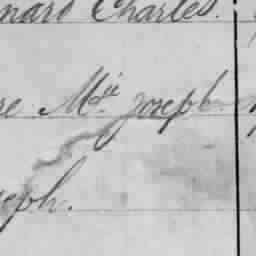 nard Charles.
re Mie Joseph
seph.